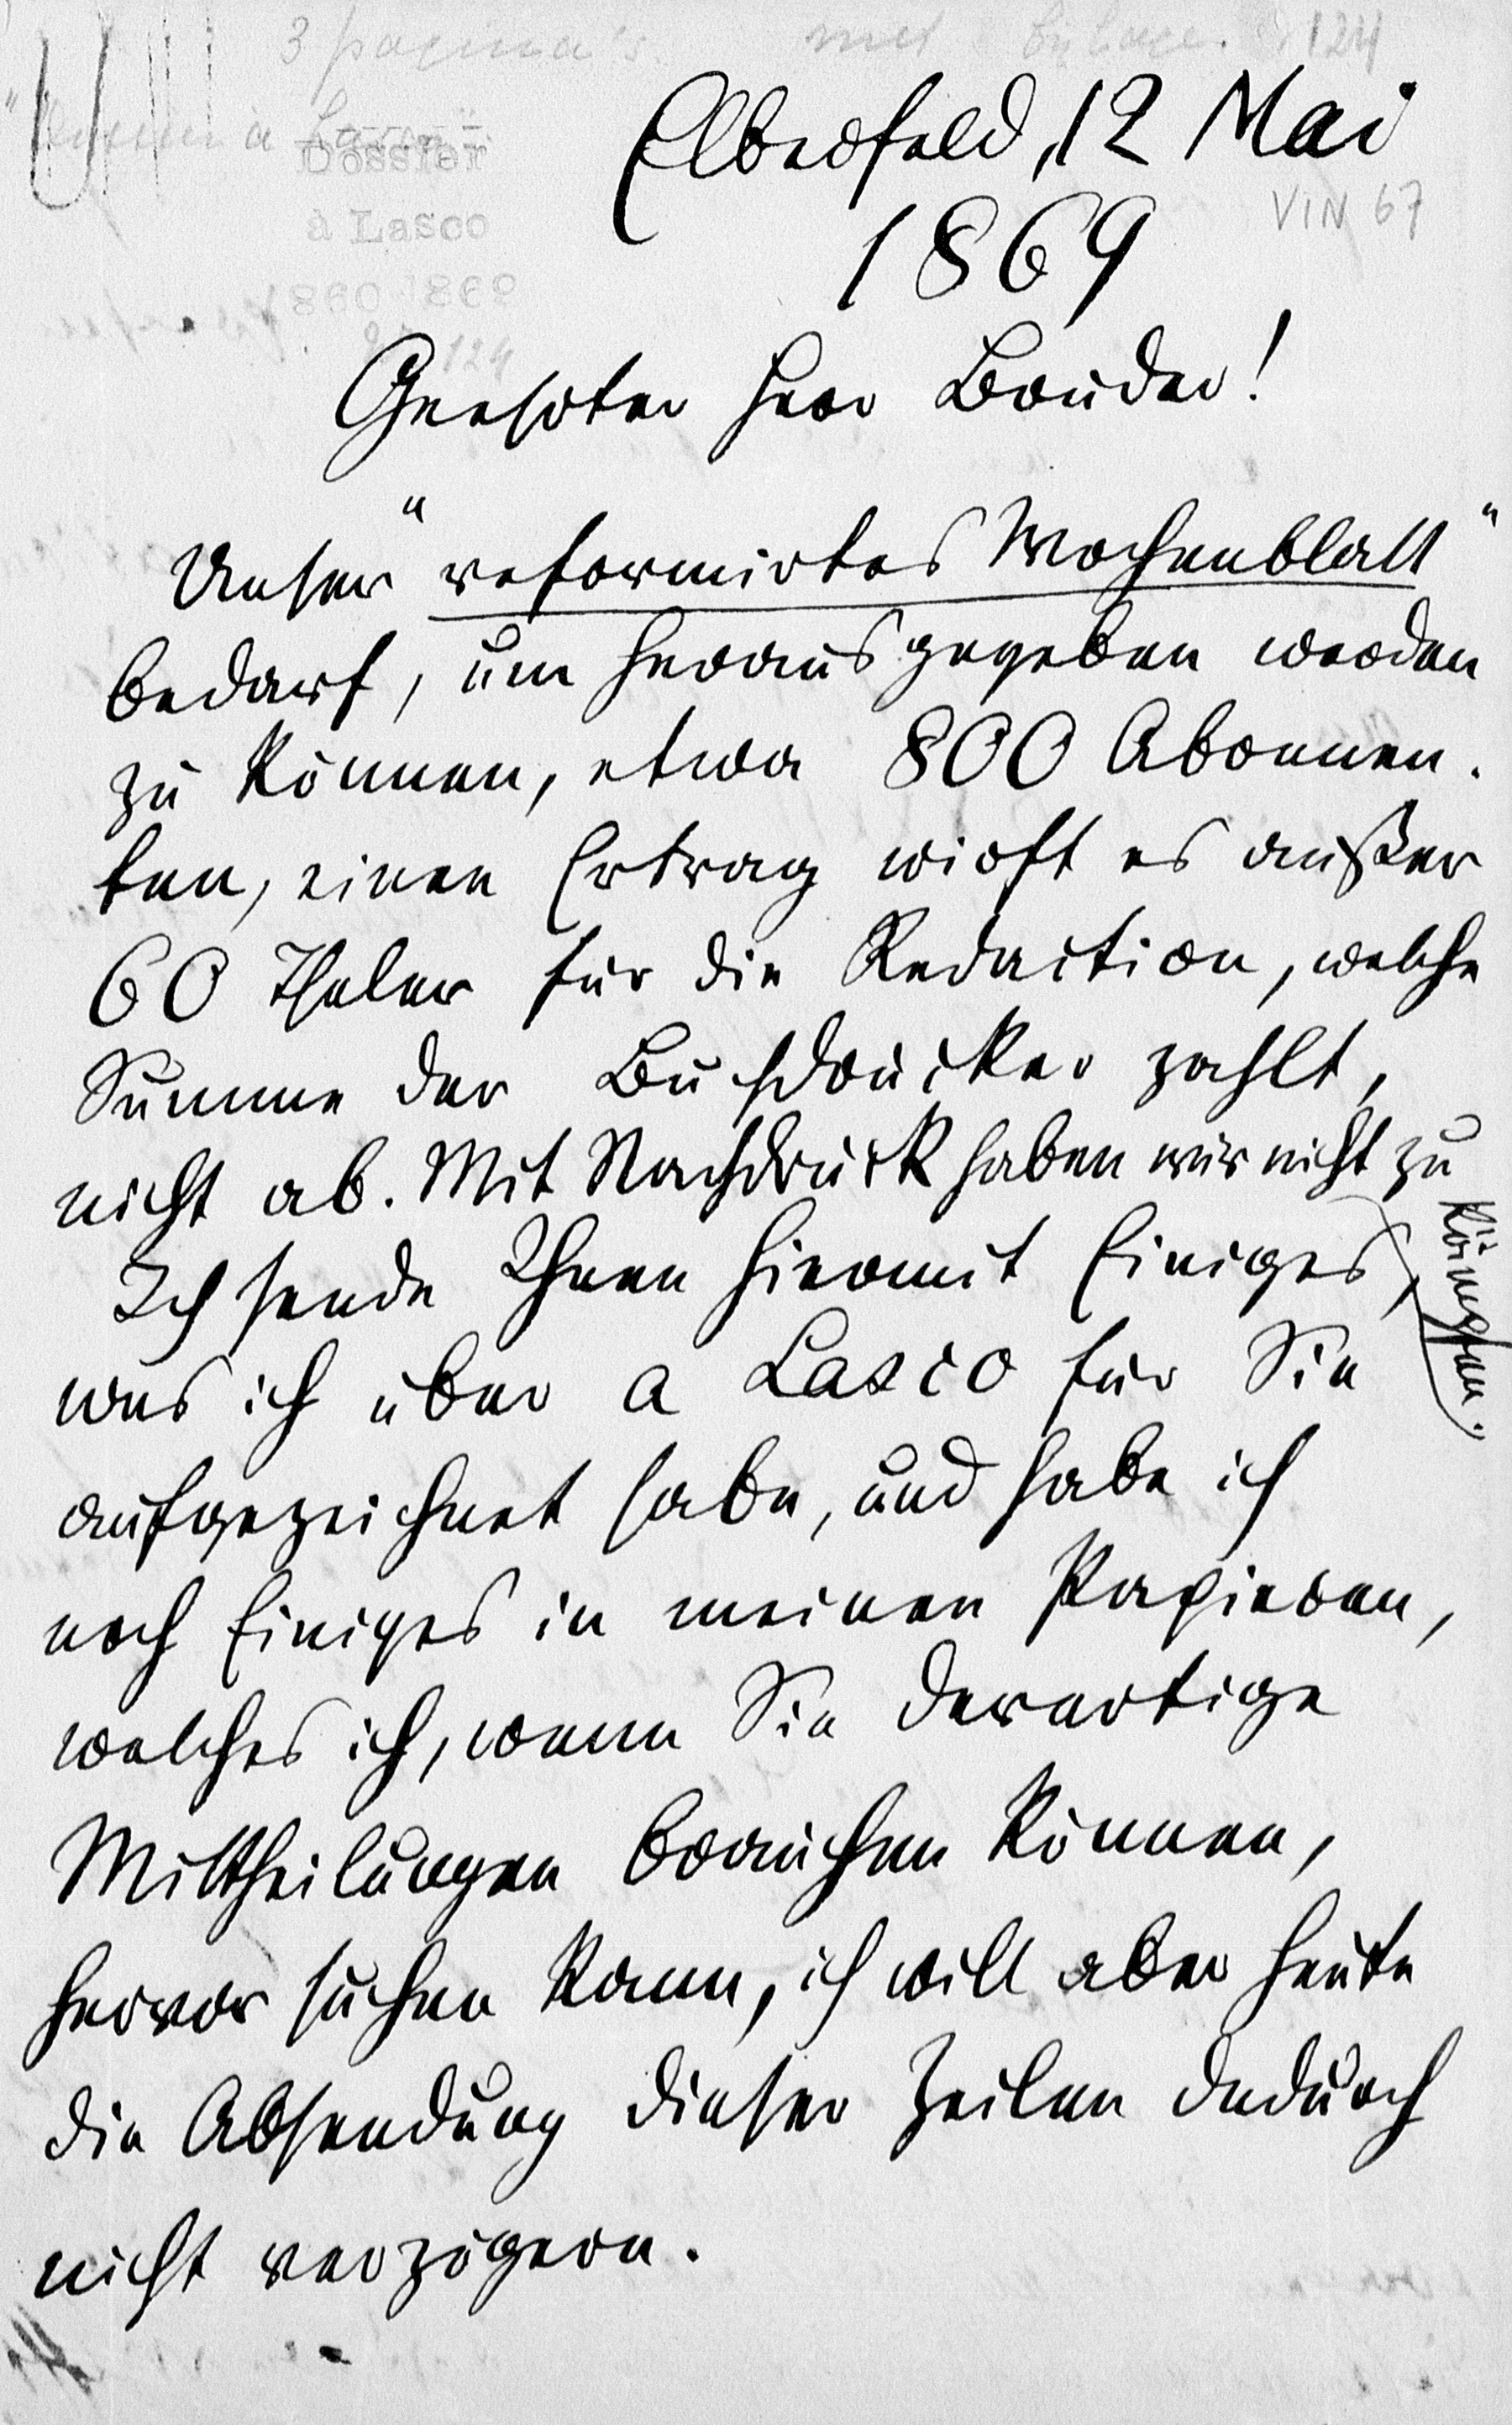 3 pagina's met bijlage. 124
Dossier
à Lasco
1860 1869
124
VIN 67
Elberfeld, 12 Mai
1869
Geehrter Herr Bruder!
Unser "reformirtes Wochenblatt"
bedarf, um herausgegeben werden
zu können, etwa 800 Abonnen.
ten, einen Ertrag wirft es außer
60 Thaler für die Redaction, welche
Summe der Buchdrucker zahlt,
nicht ab. Mit Nachdruck haben wir nicht zu
kämpfen.
Ich sende Ihnen hiermit Einiges,
was ich über a Lasco für Sie
aufgezeichnet habe, und habe ich
noch Einiges in meinen Papieren,
welches ich, wenn Sie derartige
Mittheilungen brauchen können,
hervor suchen kann, ich will aber heute
die Absendung dieser Zeilen dadurch
nicht verzögern.